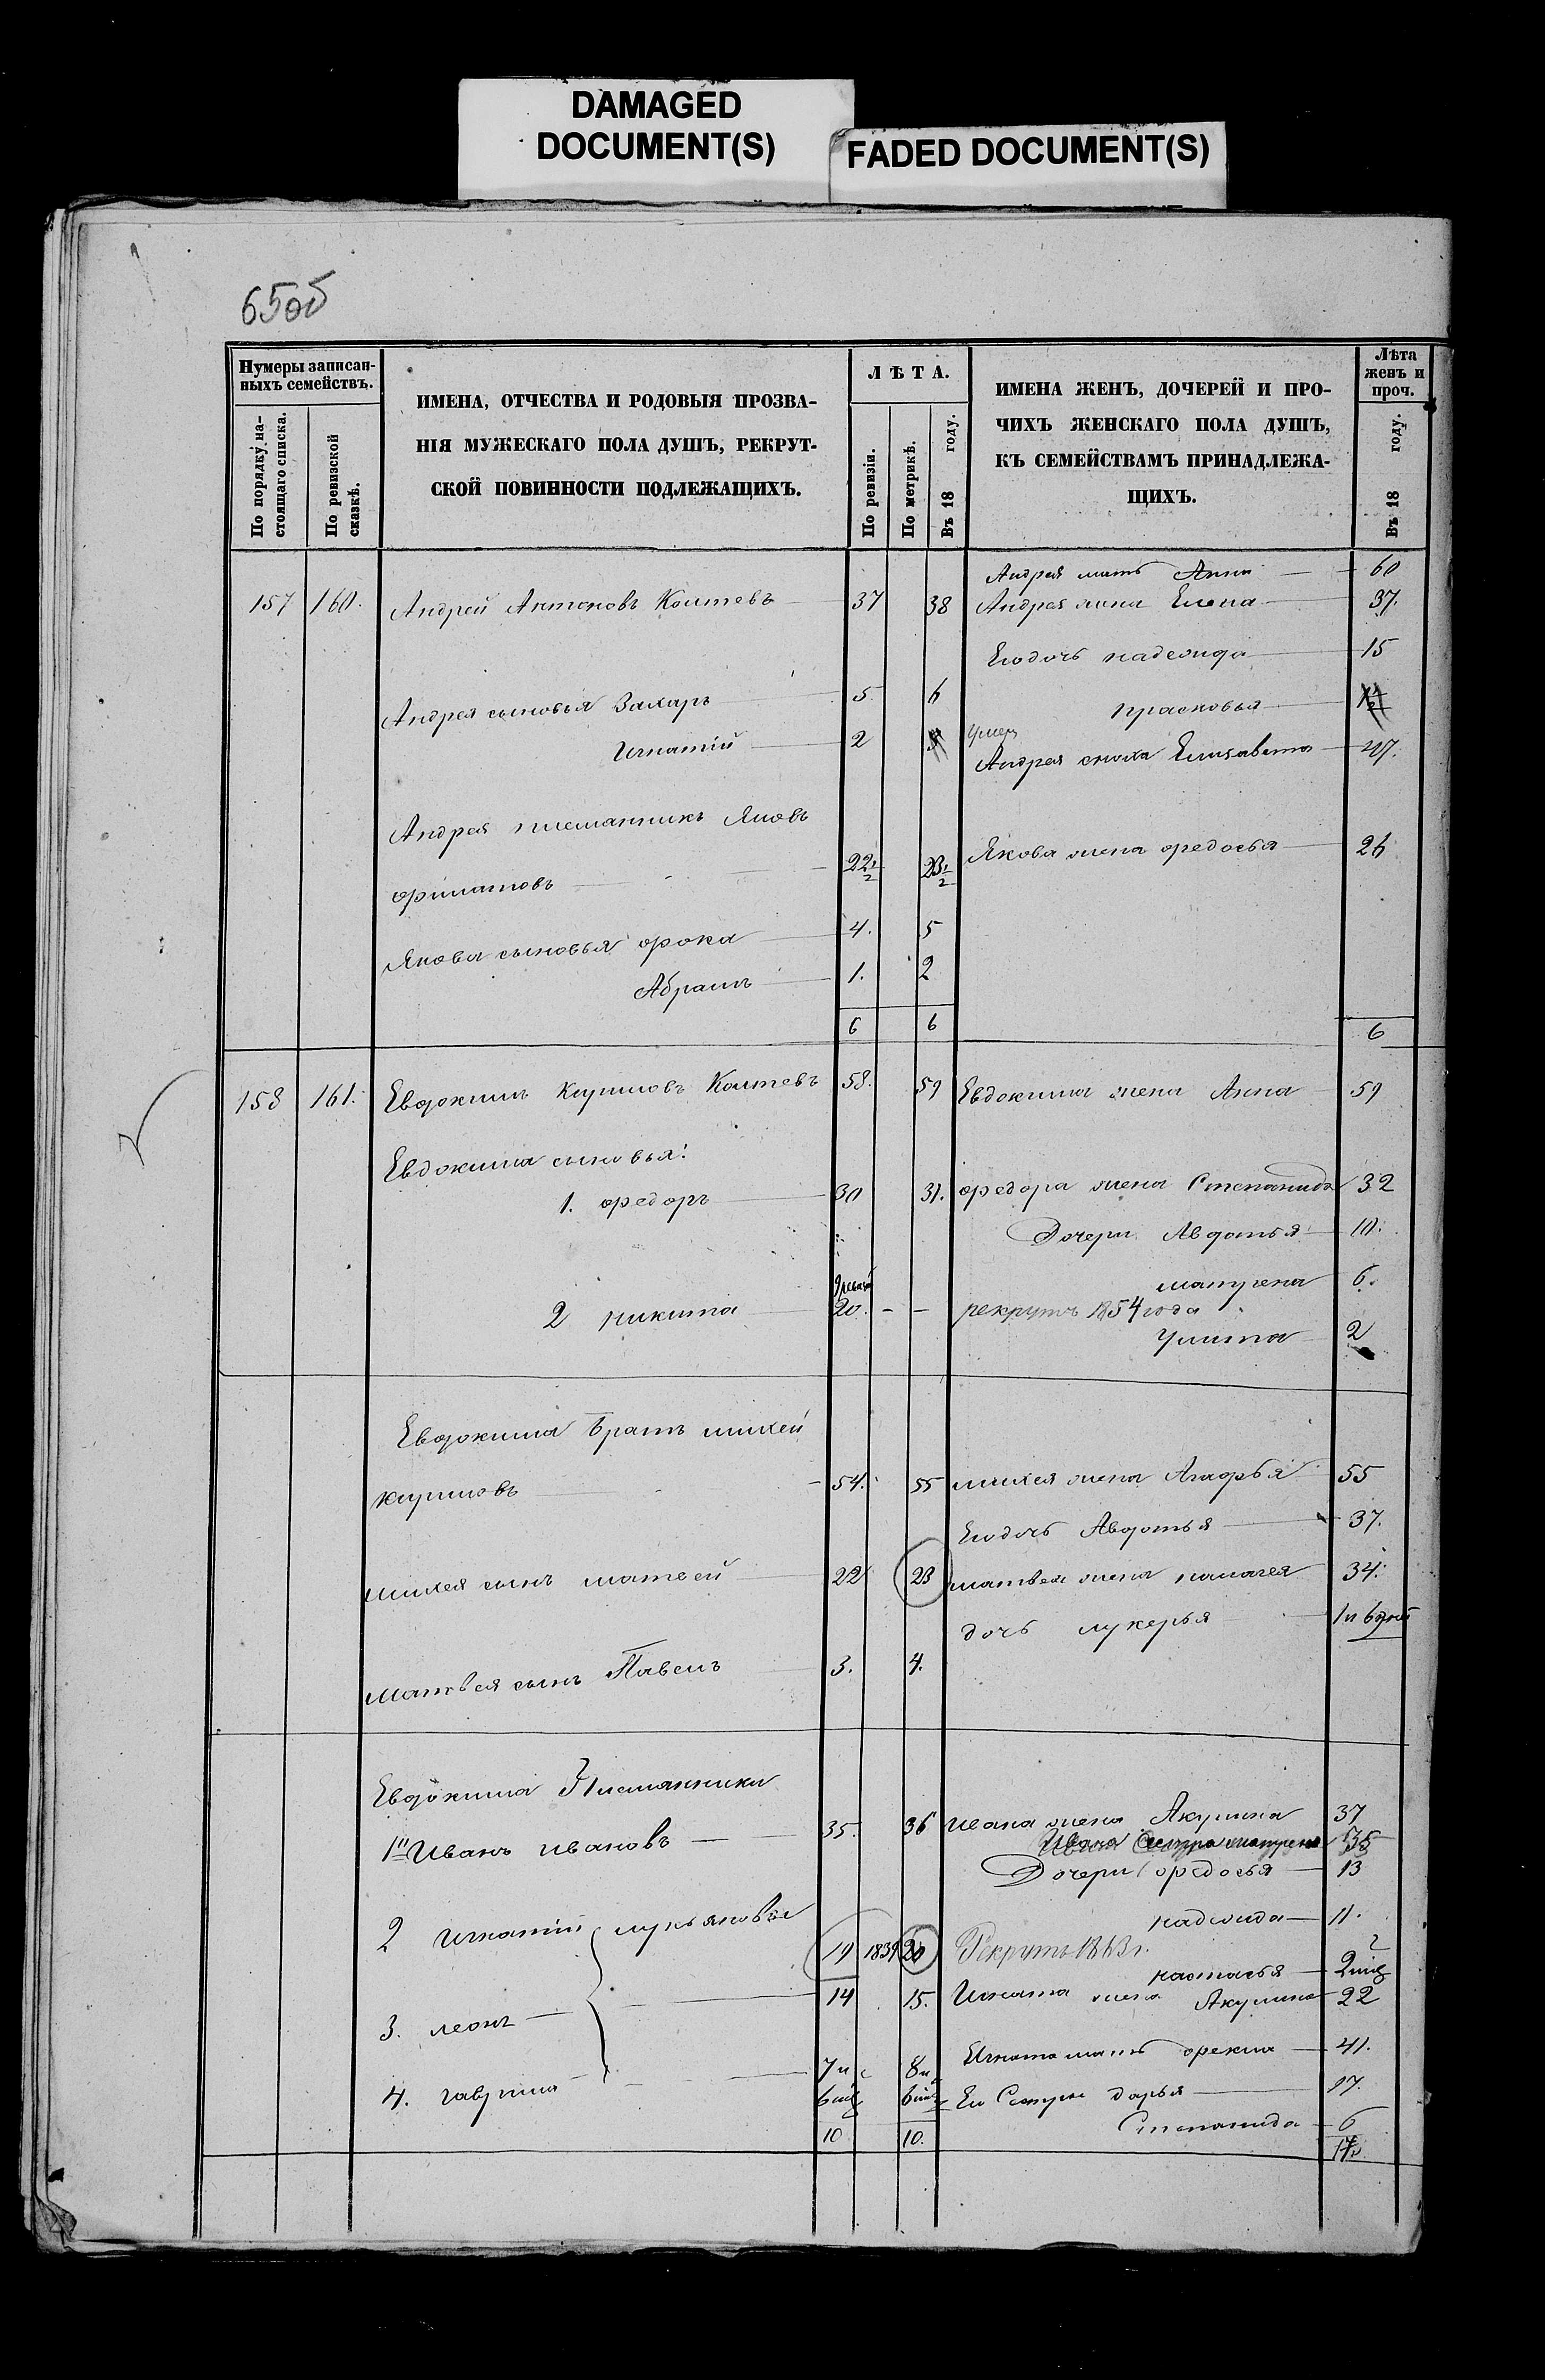 DAMAGED
DOCUMENT(S)
FADED DOCUMENT(S)
65об
Нумеры записан-
ныхъ семействъ.
По порядку на-
стоящаго списка.
По ревизской
сказкѣ.
ИМЕНА, ОТЧЕСТВА И РОДОВЫЯ ПРОЗВА-
НІЯ МУЖЕСКАГО ПОЛА ДУШЪ, РЕКРУТ-
СКОЙ ПОВИННОСТИ ПОДЛЕЖАЩИХЪ.
ЛѢТА.
По ревизіи.
По метрикѣ.
Въ 18 году.
ИМЕНА ЖЕНЪ, ДОЧЕРЕЙ И ПРО-
ЧИХЪ ЖЕНСКАГО ПОЛА ДУШЪ,
КЪ СЕМЕЙСТВАМЪ ПРИНАДЛЕЖА-
ЩИХЪ.
Лѣта
женъ и
проч.
Въ 18 году.
Андрея мать Анна 60
157 160. Андрей Антоновъ 37 38 Андрея жена Елена 37.
Его дочь надежда 15
Андрея сыновья Захаръ 5 6 прасковья
Игнатій 2
Андрея сноха Елизавета 47.
Андрея племянникъ Яковъ
филатовъ 22 1/2 23 1/2 Якова жена федосья 26
Якова сыновья фока 4. 5
Абрамъ 1. 2
6 6 6
158 161. Евдокимъ Кириловъ 58. 59 Евдокима жена Анна 59
Евдокима сыновья:
1. федоръ 30 31. федора жена Степанида 32
Дочери Авдотья 10.
матрена 6.
2 никита 20. - - рекрутъ 1854 года
Улита 2
Евдокима братъ михей
кириловъ 54. 55 михея жена Агафья 55
Его дочь Авдотья 37.
михея сынъ матвей 22 23 матвея жена пелагея 34.
дочь лукерья 1 и 6
матвея сынъ Павелъ 3. 4.
Евдокима Племянники
1й Иванъ ивановъ 35. 36 ивана жена Акулина 37
Ивана Сестра матрена
Дочери федосья 13
надежда 11.
2 игнатій лукьяновы 19 1839 20 Рекрутъ 1863 г.
настасья 2
3. леонъ 14 15. Игната жена Акулина 22
Игната мать фекла 41.
4. гаврила 7 и 6 8 и 6 Его Сестры дарья 17.
Степанида 6
10 10.